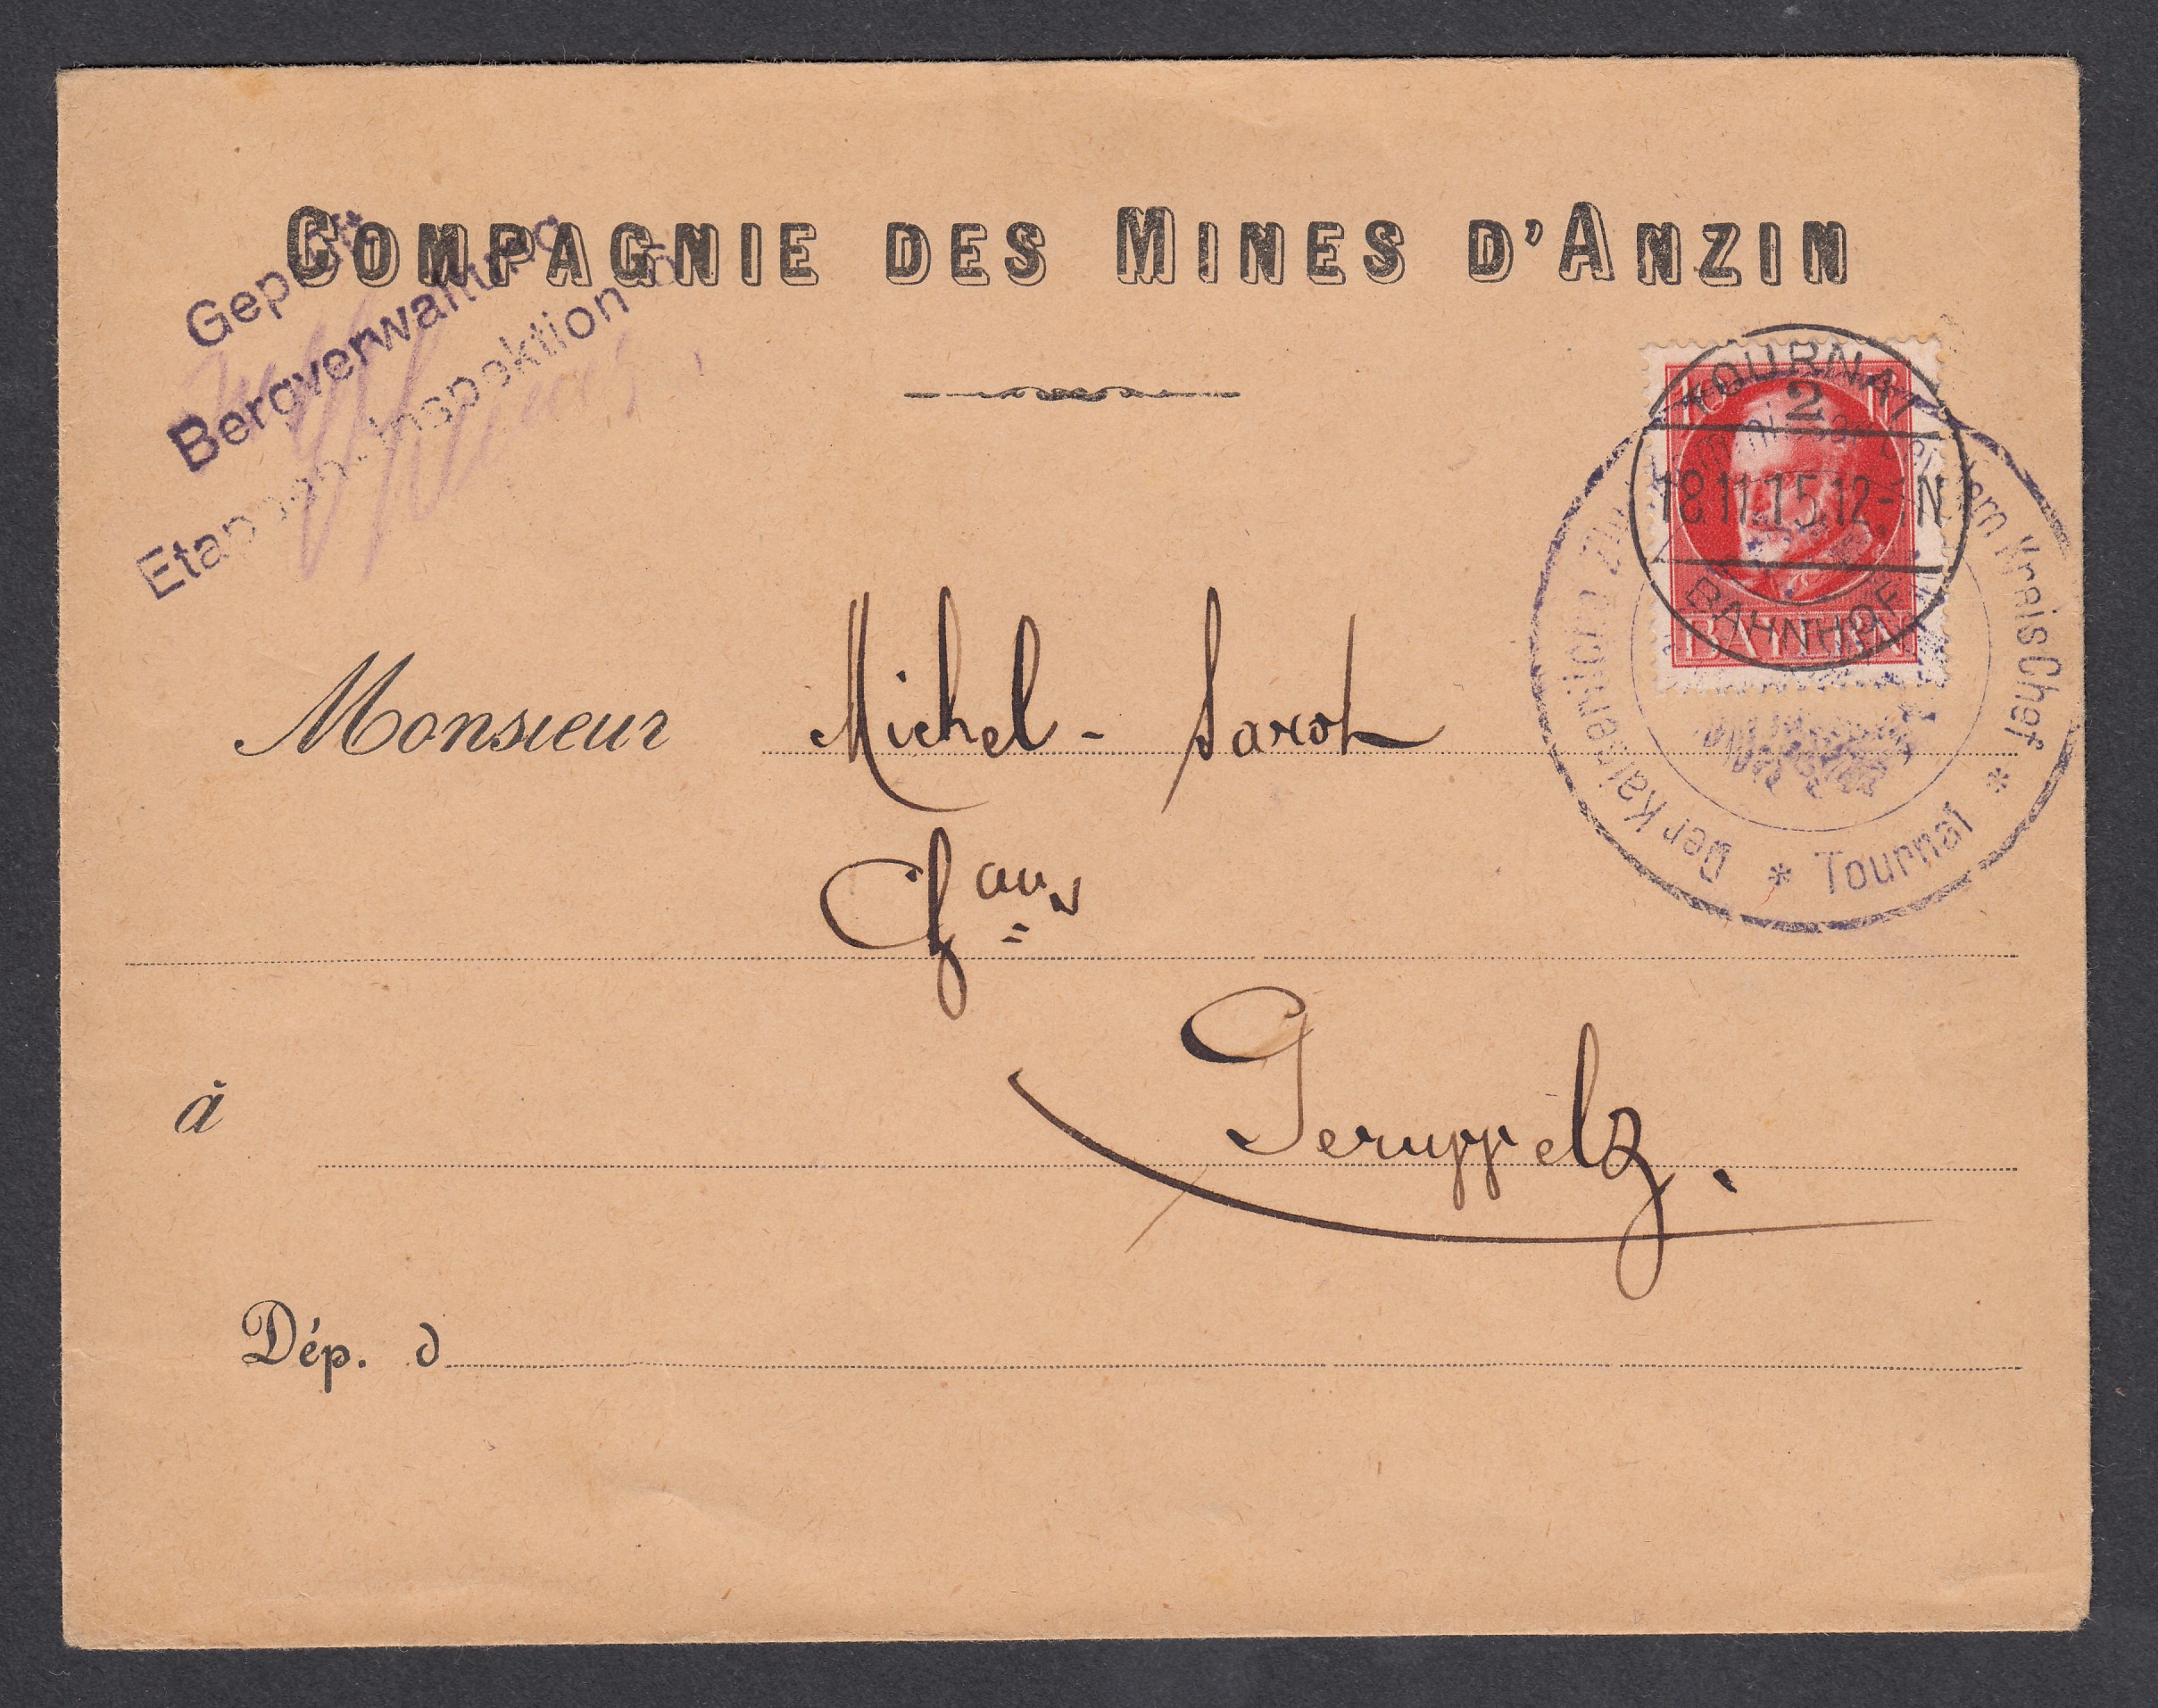 COMPAGNIE DES MINES D'ANZIN
Geprüft
Bergverwaltung
Etappen-Inspektion
TOURNAI
2
18.11.15.12-1N
BAHNHOF
10
BAYERN
Der Kaiserliche Zivilkommissar bei dem Kreischef
* Tournai *
Monsieur Michel-Savot
à Peruyyelz.
Dép. d